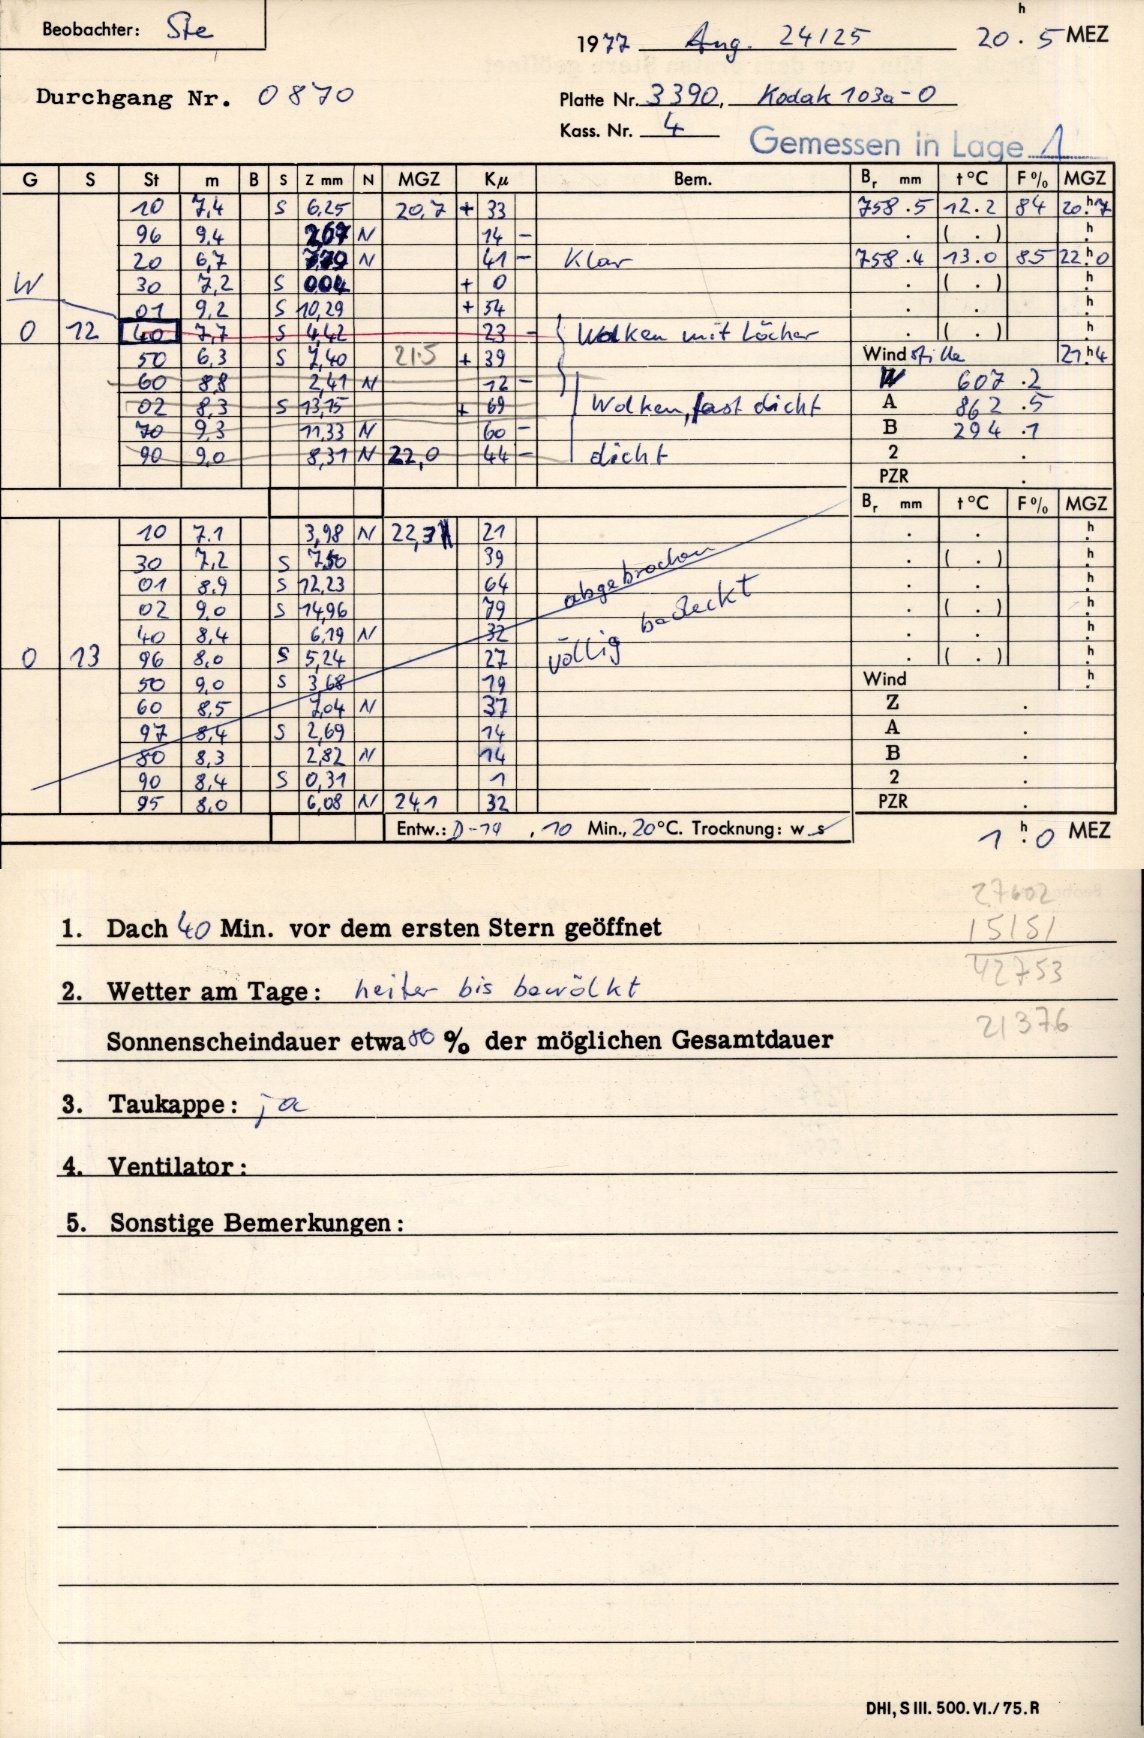 Beobachter: Ste
h
1977 Aug. 24/25 20 . 5 MEZ
Durchgang Nr. 0870
Platte Nr. 3390, Kodak 103a-O
Kass. Nr. 4
Gemessen in Lage 1
G S St m B S Z mm N MGZ Kμ Bem. Br mm t°C F% MGZ
10 7,4 S 6,25 20,7 + 33 758.5 12.2 84 20.h7
96 9,4 2,67 N 14 - . ( . ) h
20 6,7 7,79 N 41 - Klar 758.4 13.0 85 22.h0
W 30 7,2 S 004 + 0 . ( . ) h
01 9,2 S 10,29 + 54 . . h
0 12 40 7,7 S 4,42 23 - Wolken mit Löcher . ( . ) h
50 6,3 S 7,40 21.5 + 39 Wind stille 21.h4
60 8,8 2,41 N 12 - W 607 .2
02 8,3 S 13,15 + 69 Wolken, fast dicht A 862 .5
70 9,3 11,33 N 60 - B 294 .1
90 9,0 8,31 N 22,0 44 - dicht 2 .
PZR .
Br mm t°C F% MGZ
10 7.1 3,98 N 22,3 21 . . h
30 7,2 S 7,50 39 . ( . ) h
01 8,9 S 12,23 64 abgebrochen . . h
02 9,0 S 14,96 79 völlig bedeckt . ( . ) h
40 8,4 6,19 N 32 . . h
0 13 96 8,0 S 5,24 27 . ( . ) h
50 9,0 S 3,68 19 Wind h
60 8,5 7,04 N 37 Z .
97 8,4 S 2,69 14 A .
80 8,3 2,82 N 14 B .
90 8,4 S 0,31 1 2 .
95 8,0 6,08 N 24,1 32 PZR .
Entw.: D-19 , 10 Min., 20°C. Trocknung: w s
1 h. 0 MEZ
27602
1. Dach 40 Min. vor dem ersten Stern geöffnet 15151
42753
2. Wetter am Tage: heiter bis bewölkt
21376
Sonnenscheindauer etwa 80 % der möglichen Gesamtdauer
3. Taukappe: ja
4. Ventilator:
5. Sonstige Bemerkungen:
DHI, S III. 500. VI./75. R